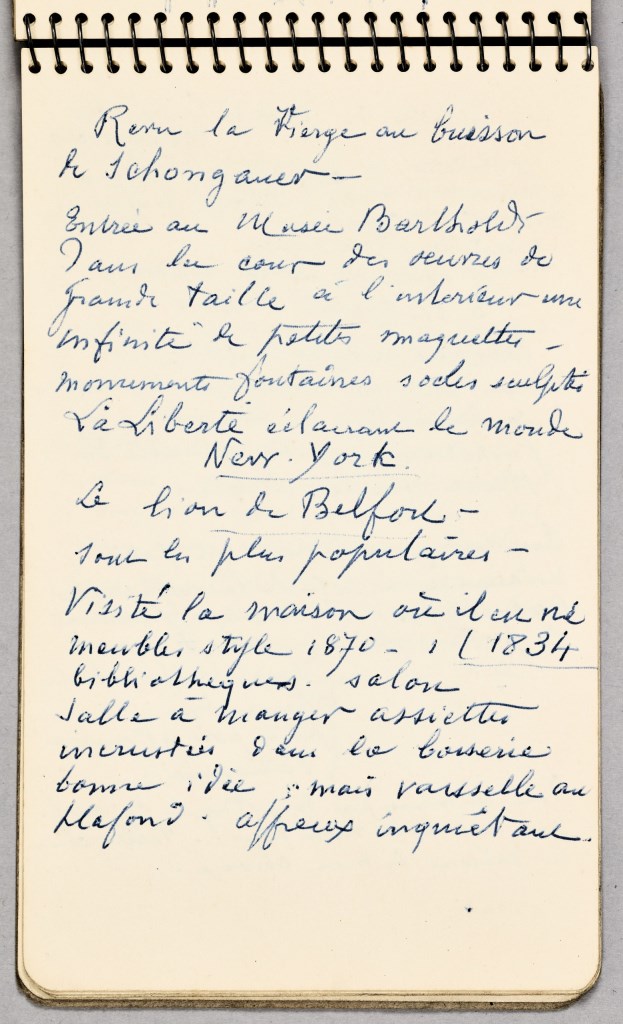 Revu la Vierge au buisson
de Schongauer –
Entrée au Musée Bartholdi
Dans la cour des oeuvres de
grande taille à l'interieur une
infinité de petites maquettes –
monuments fontaines socles sculptés
La Liberté éclairant le monde
New-York.
Le lion de Belfort –
sont les plus populaires –
Visité la maison où il est né
meubles style 1870 – 1834
bibliotheques. salon
Salle à manger assiettes
incrustées dans la boiserie
bonne idée ; mais vaisselle au
plafond. affreux inquiétant.